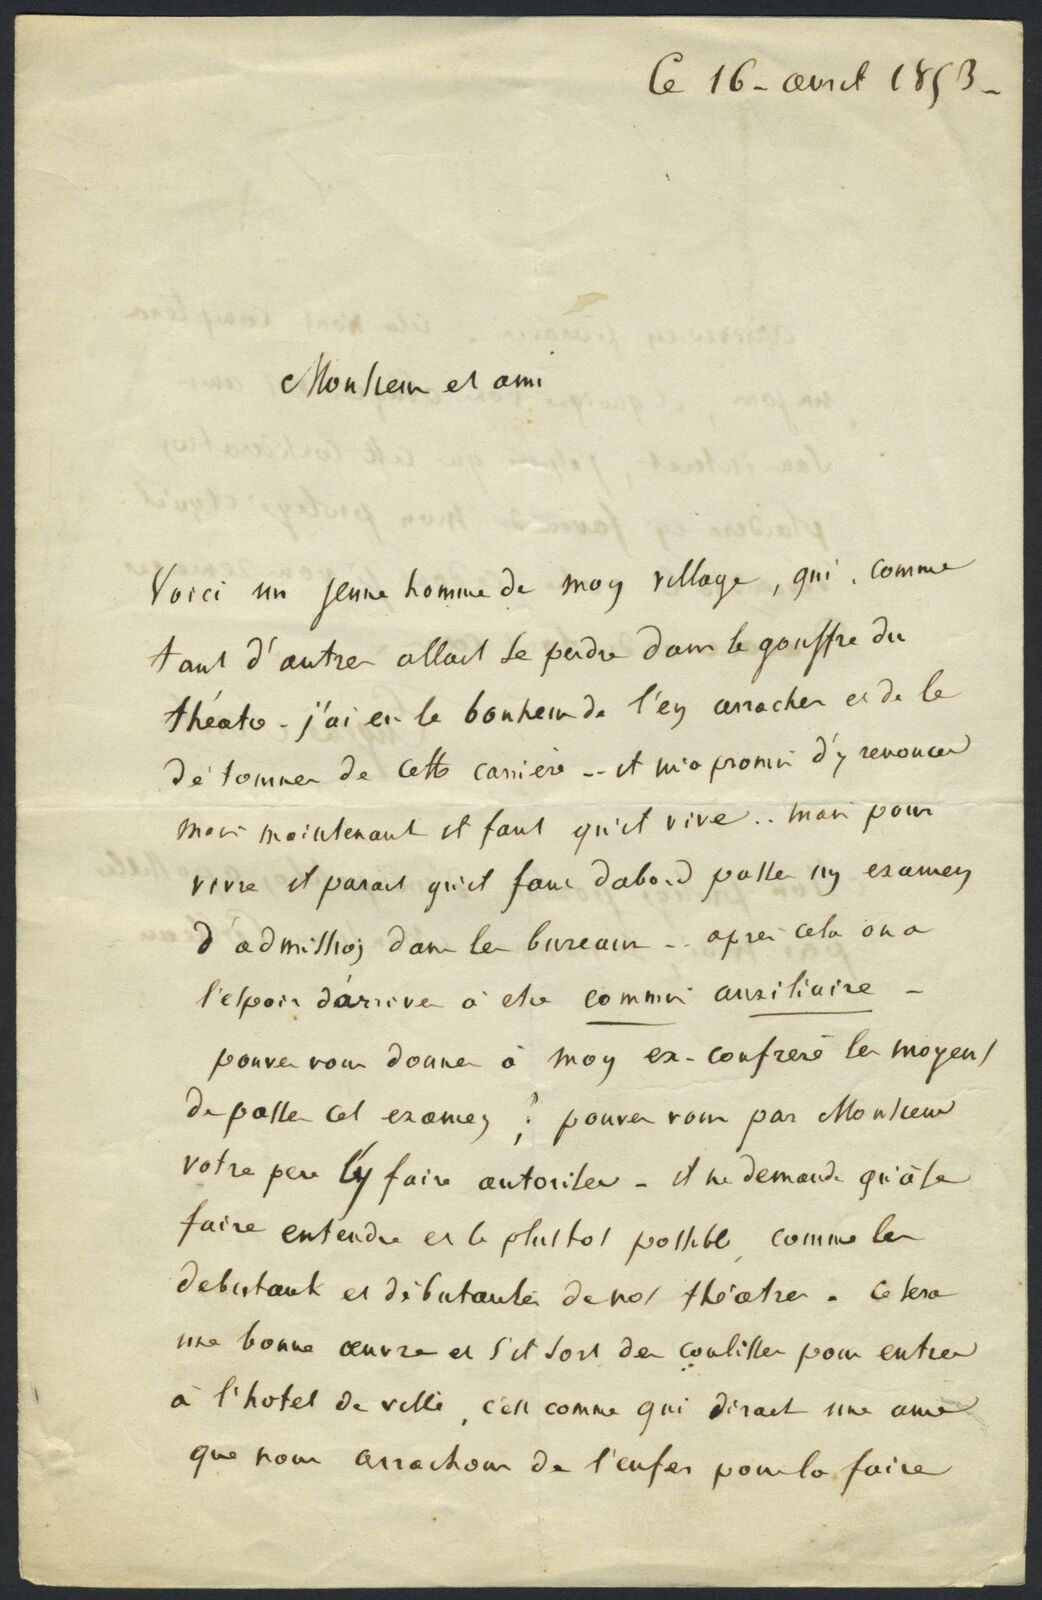 Ce 16 - avril 1853 -
Monsieur et ami
Voici un jeune homme de mon village, qui, comme
tant d'autres allait se perdre dans le gouffre du
théatre - j'ai eu le bonheur de l'en arracher et de le
détourner de cette carriere -- il m'a promis d'y renoncer
mais maintenant il faut qu'il vive .. mais pour
vivre il parait qu'il faut dabord passer un examen
d'admission dans les bureaux -- apres cela on a
l'espoir d'arriver à etre commis auxiliaire -
pouvez vous donner à mon ex-confrere les moyens
de passer cet examen ? pouvez vous par Monsieur
votre pere l'y faire autoriser - il ne demande qu'à se
faire entendre et le plustot possible, comme les
debutants et débutantes de nos théatres - ce sera
une bonne œuvre et s'il sort des coulisses pour entrer
à l'hotel de ville, c'est comme qui dirait une ame
que nous arrachons de l'enfer pour la faire